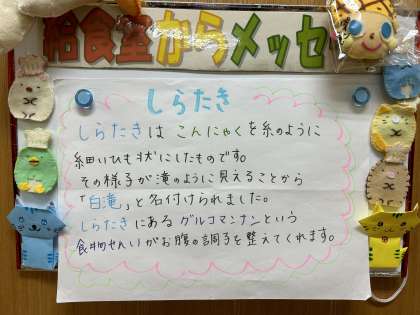 給食室からメッセ
しらたき
しらたきは こんにゃくを糸のように
細いひも状にしたものです。
その様子が滝のように見えることから
「白滝」と名付けられました。
しらたきにあるグルコマンナンという
食物せんいがお腹の調子を整えてくれます。